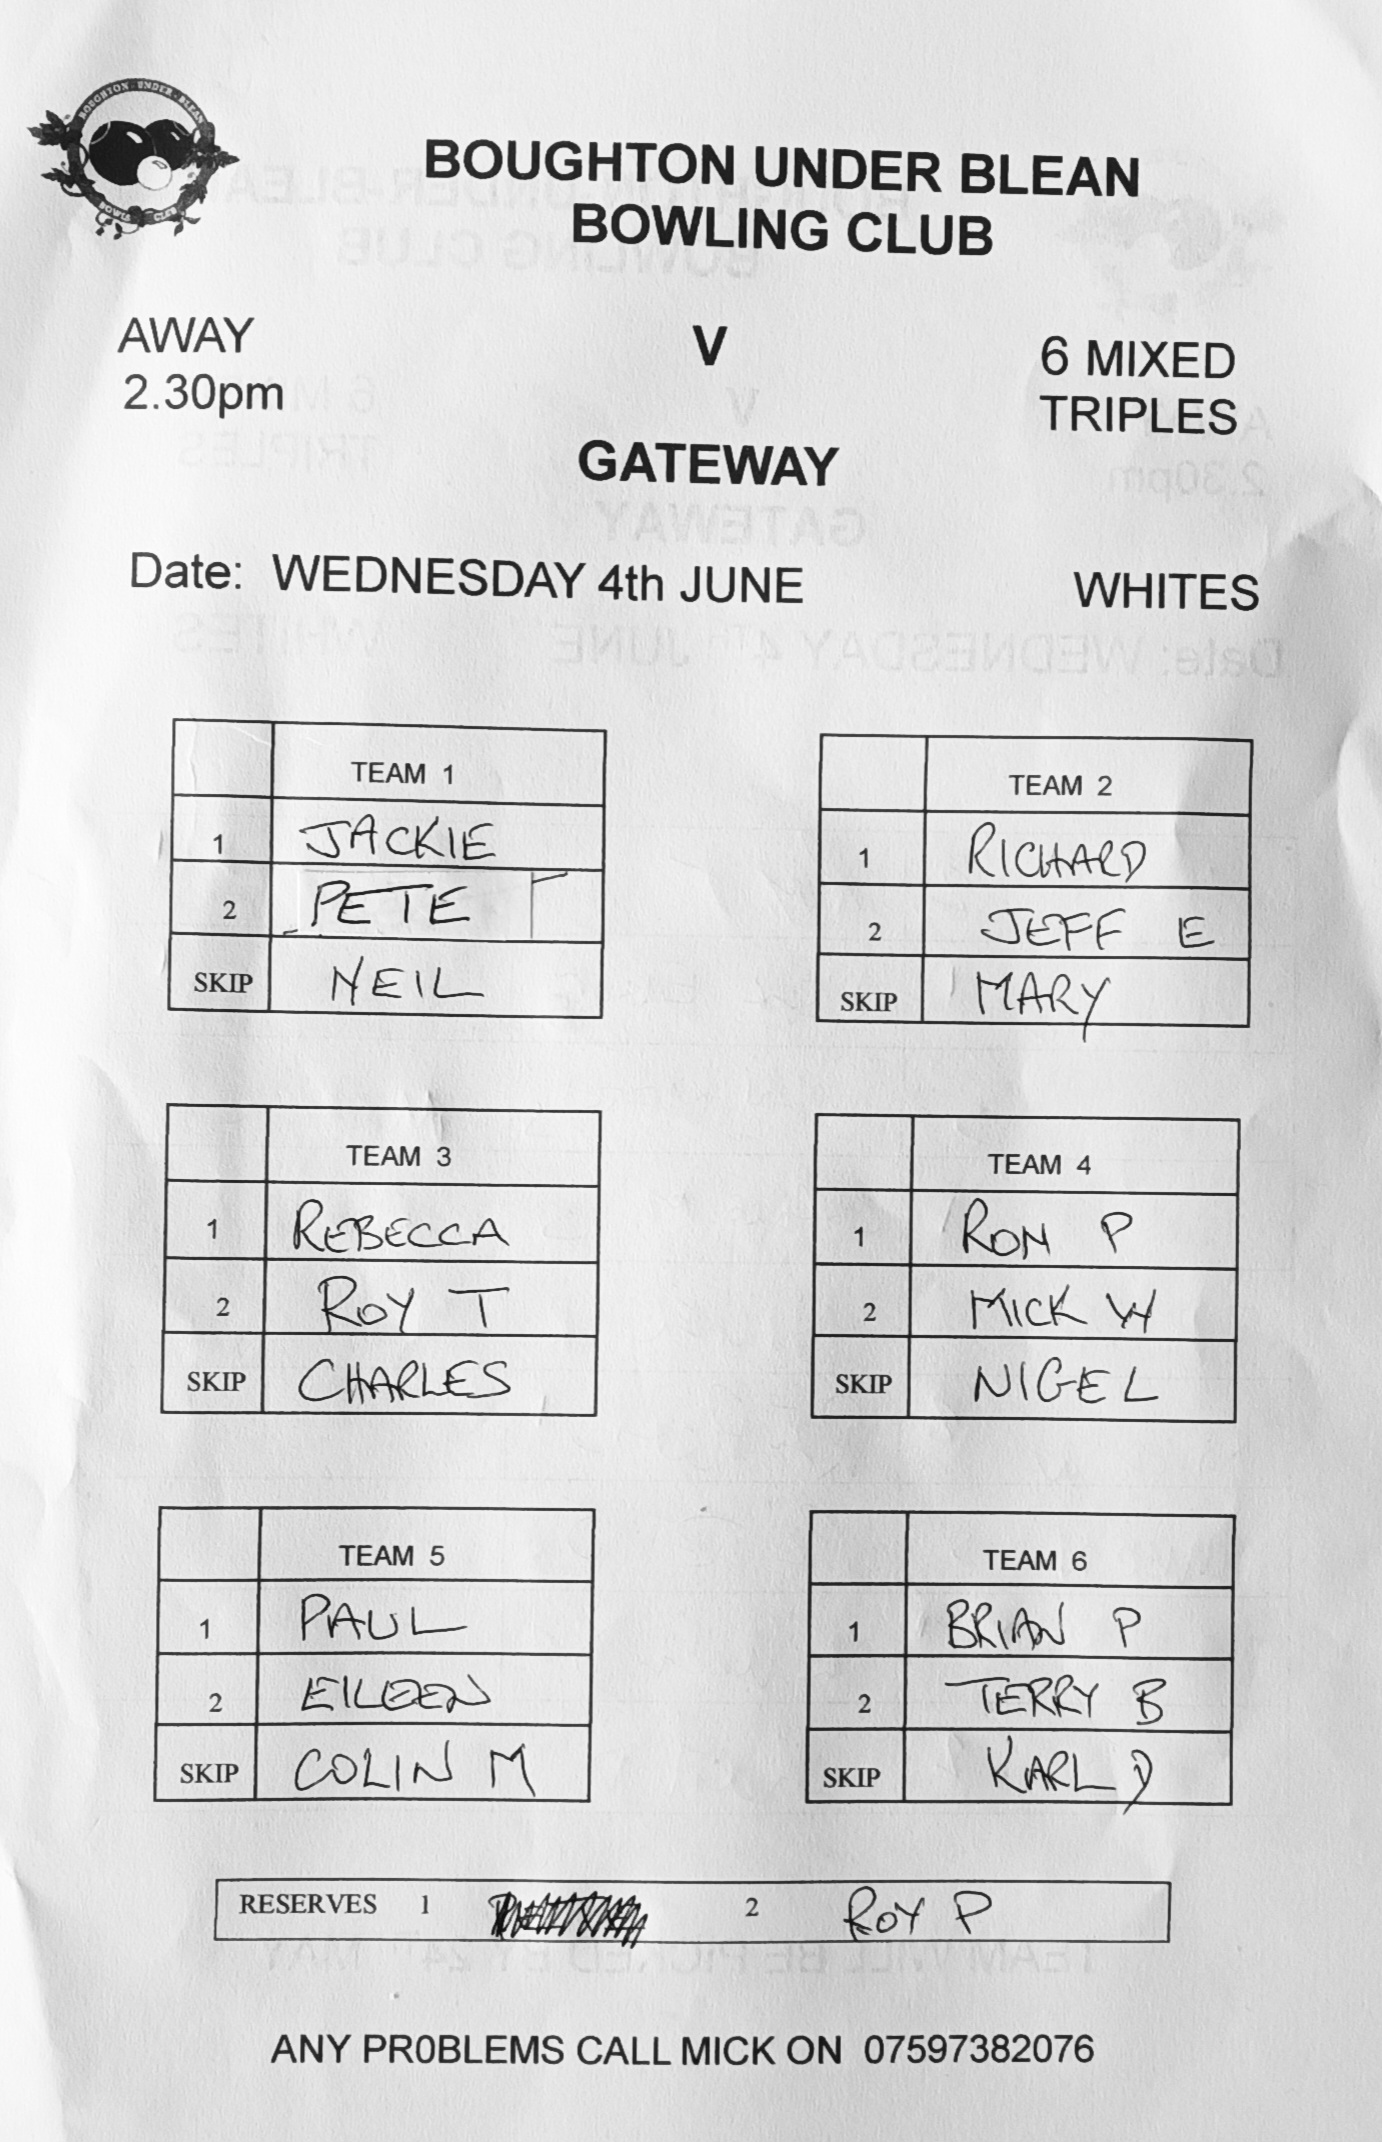 BOUGHTON UNDER BLEAN
BOWLS CLUB
BOUGHTON UNDER BLEAN
BOWLING CLUB
AWAY V 6 MIXED
2.30pm TRIPLES
GATEWAY
Date: WEDNESDAY 4th JUNE WHITES
TEAM 1
1 JACKIE
2 PETE T
SKIP NEIL
TEAM 2
1 RICHARD
2 JEFF E
SKIP MARY
TEAM 3
1 REBECCA
2 ROY T
SKIP CHARLES
TEAM 4
1 RON P
2 MICK W
SKIP NIGEL
TEAM 5
1 PAUL
2 EILEEN
SKIP COLIN M
TEAM 6
1 BRIAN P
2 TERRY B
SKIP KARL D
RESERVES 1 2 ROY P
ANY PR0BLEMS CALL MICK ON 07597382076